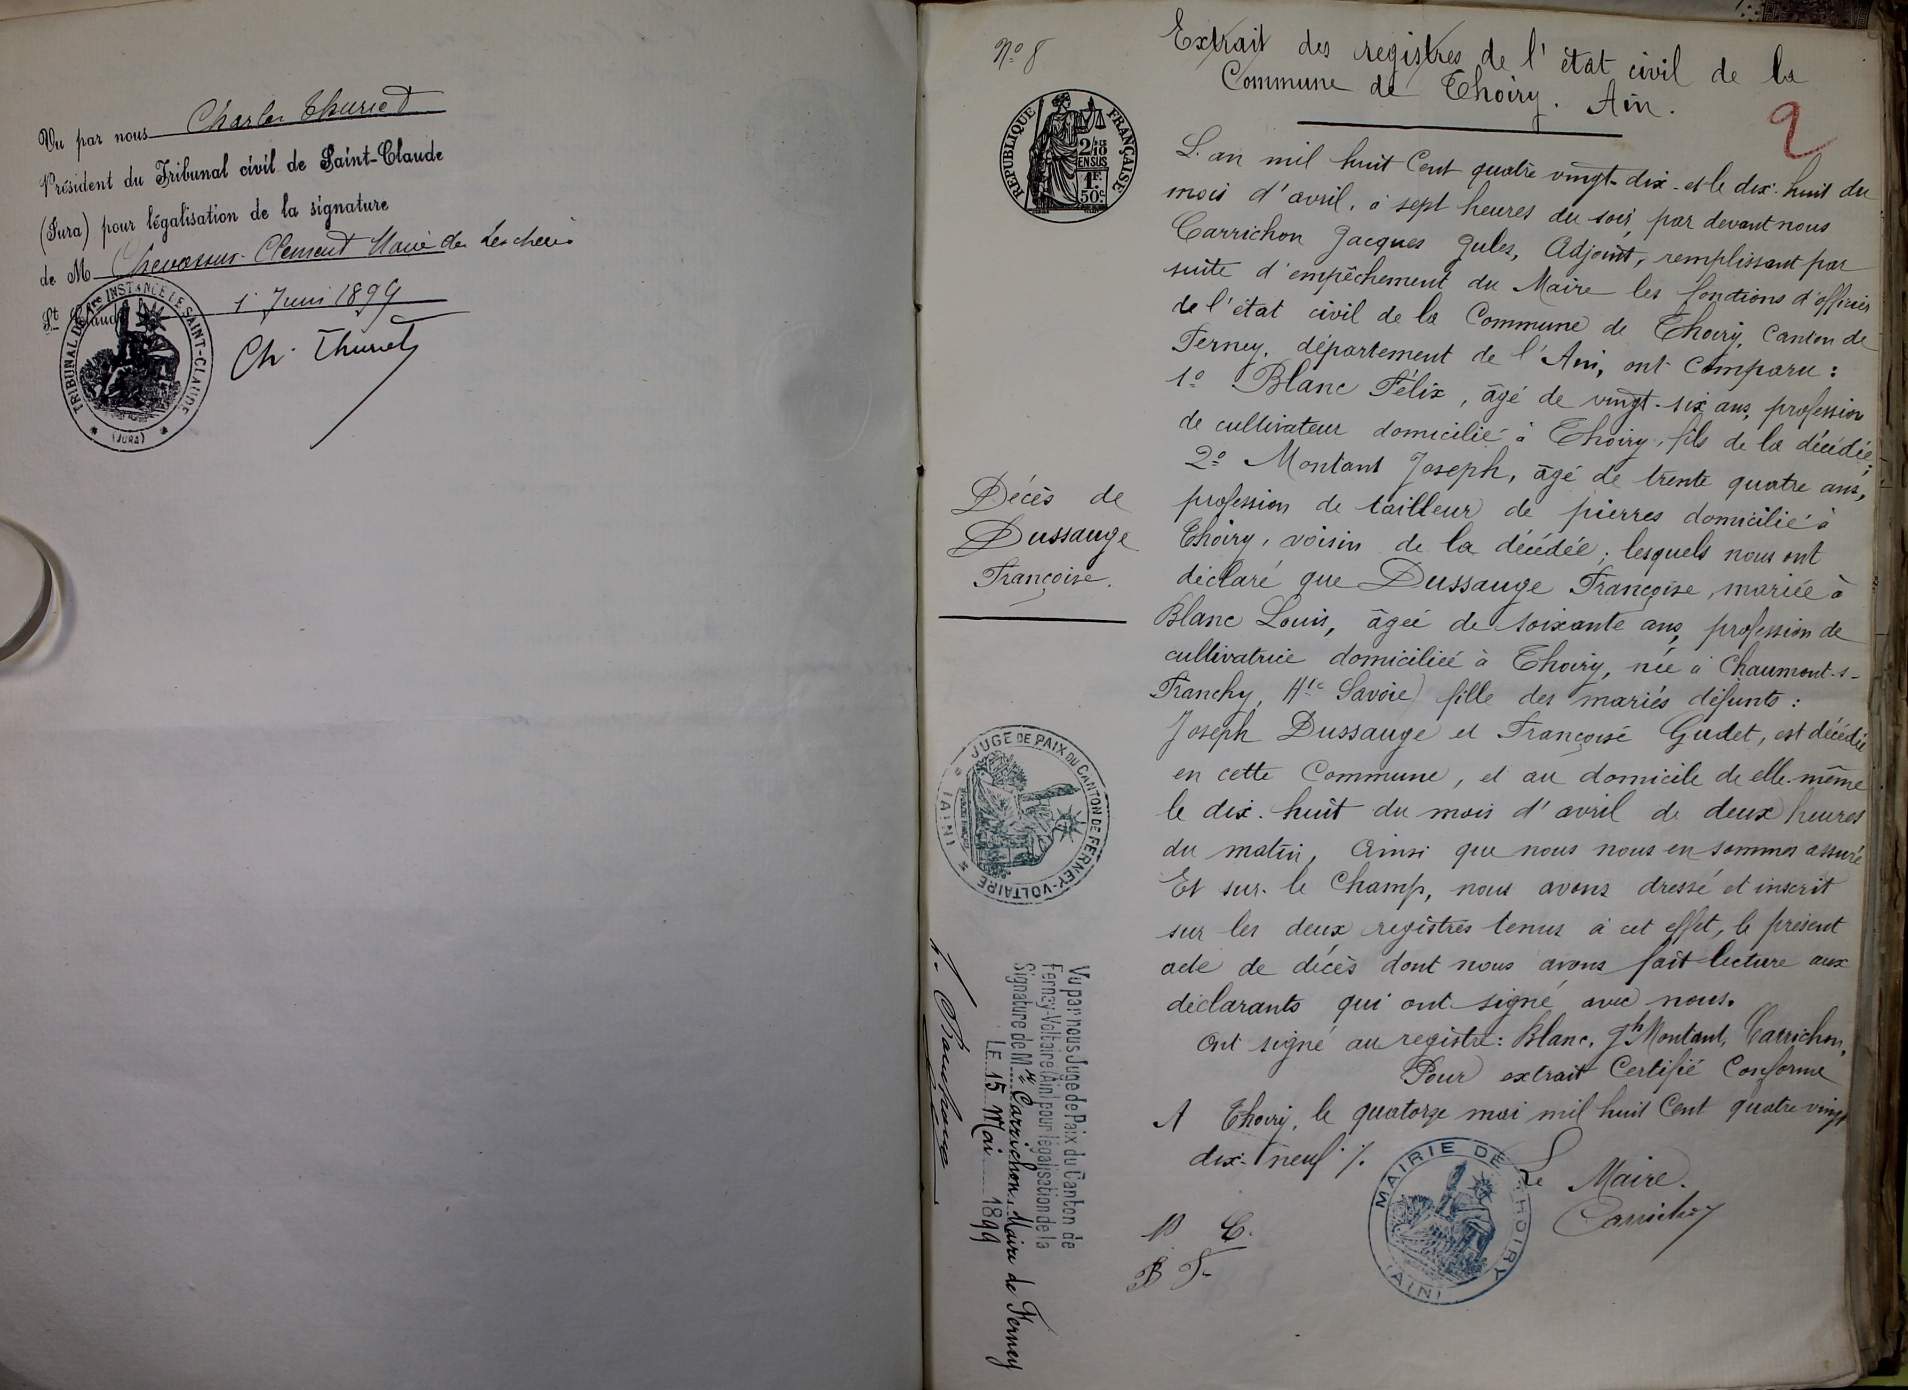 Vu par nous Charles Thuriet
Président du Tribunal civil de Saint-Claude
(Jura) pour légalisation de la signature
de M Chevassus Clément Maire des
St Claude 1 Juin 1899
Ch. Thuriet
TRIBUNAL DE 1ère INSTANCE DE SAINT-CLAUDE
(JURA)
No 8
Extrait des registres de l'état civil de la
Commune de Thoiry. Ain.
2
REPUBLIQUE FRANÇAISE
2/10
EN SUS
1F.
50c
L'an mil huit Cent quatre vingt-dix et le dix-huit du
mois d'avril, à sept heures du soir, par devant nous
Carrichon Jacques Jules, Adjoint, remplissant par
suite d'empêchement du Maire les fonctions d'officier
de l'état civil de la Commune de Thoiry, Canton de
Ferney, département de l'Ain, ont comparu :
1o Blanc Félix, âgé de vingt-six ans, profession
de cultivateur domicilié à Thoiry, fils de la décédée ;
2o Montant Joseph, âgé de trente quatre ans,
profession de tailleur de pierres domicilié à
Thoiry, voisin de la décédée ; lesquels nous ont
déclaré que Dussauge Françoise, mariée à
Blanc Louis, âgée de soixante ans, profession de
cultivatrice domiciliée à Thoiry, née à Chaumont-s-
Franchy, Hte Savoie) fille des mariés défunts :
Joseph Dussauge et Françoise Gudet, est décédée
en cette Commune, et au domicile de elle-même
le dix-huit du mois d'avril de deux heures
du matin, Ainsi que nous nous en sommes assuré
Et sur-le Champ, nous avons dressé et inscrit
sur les deux registres tenus à cet effet, le présent
acte de décès dont nous avons fait lecture aux
déclarants qui ont signé avec nous.
Ont signé au registre : Blanc, Jh Montant, Carrichon,
Pour extrait Certifié Conforme
A Thoiry, le quatorze mai mil huit Cent quatre vingt
dix-neuf ./.
Le Maire.
Carrichon
MAIRIE DE THOIRY
(AIN)
Décès de
Dussauge
Françoise.
JUGE DE PAIX DU CANTON DE FERNEY-VOLTAIRE
(AIN)
Vu par nous Juge de Paix du Canton de
Ferney-Voltaire (Ain) pour légalisation de la
Signature de Mr Carrichon, Maire de Ferney
LE 15 Mai 1899